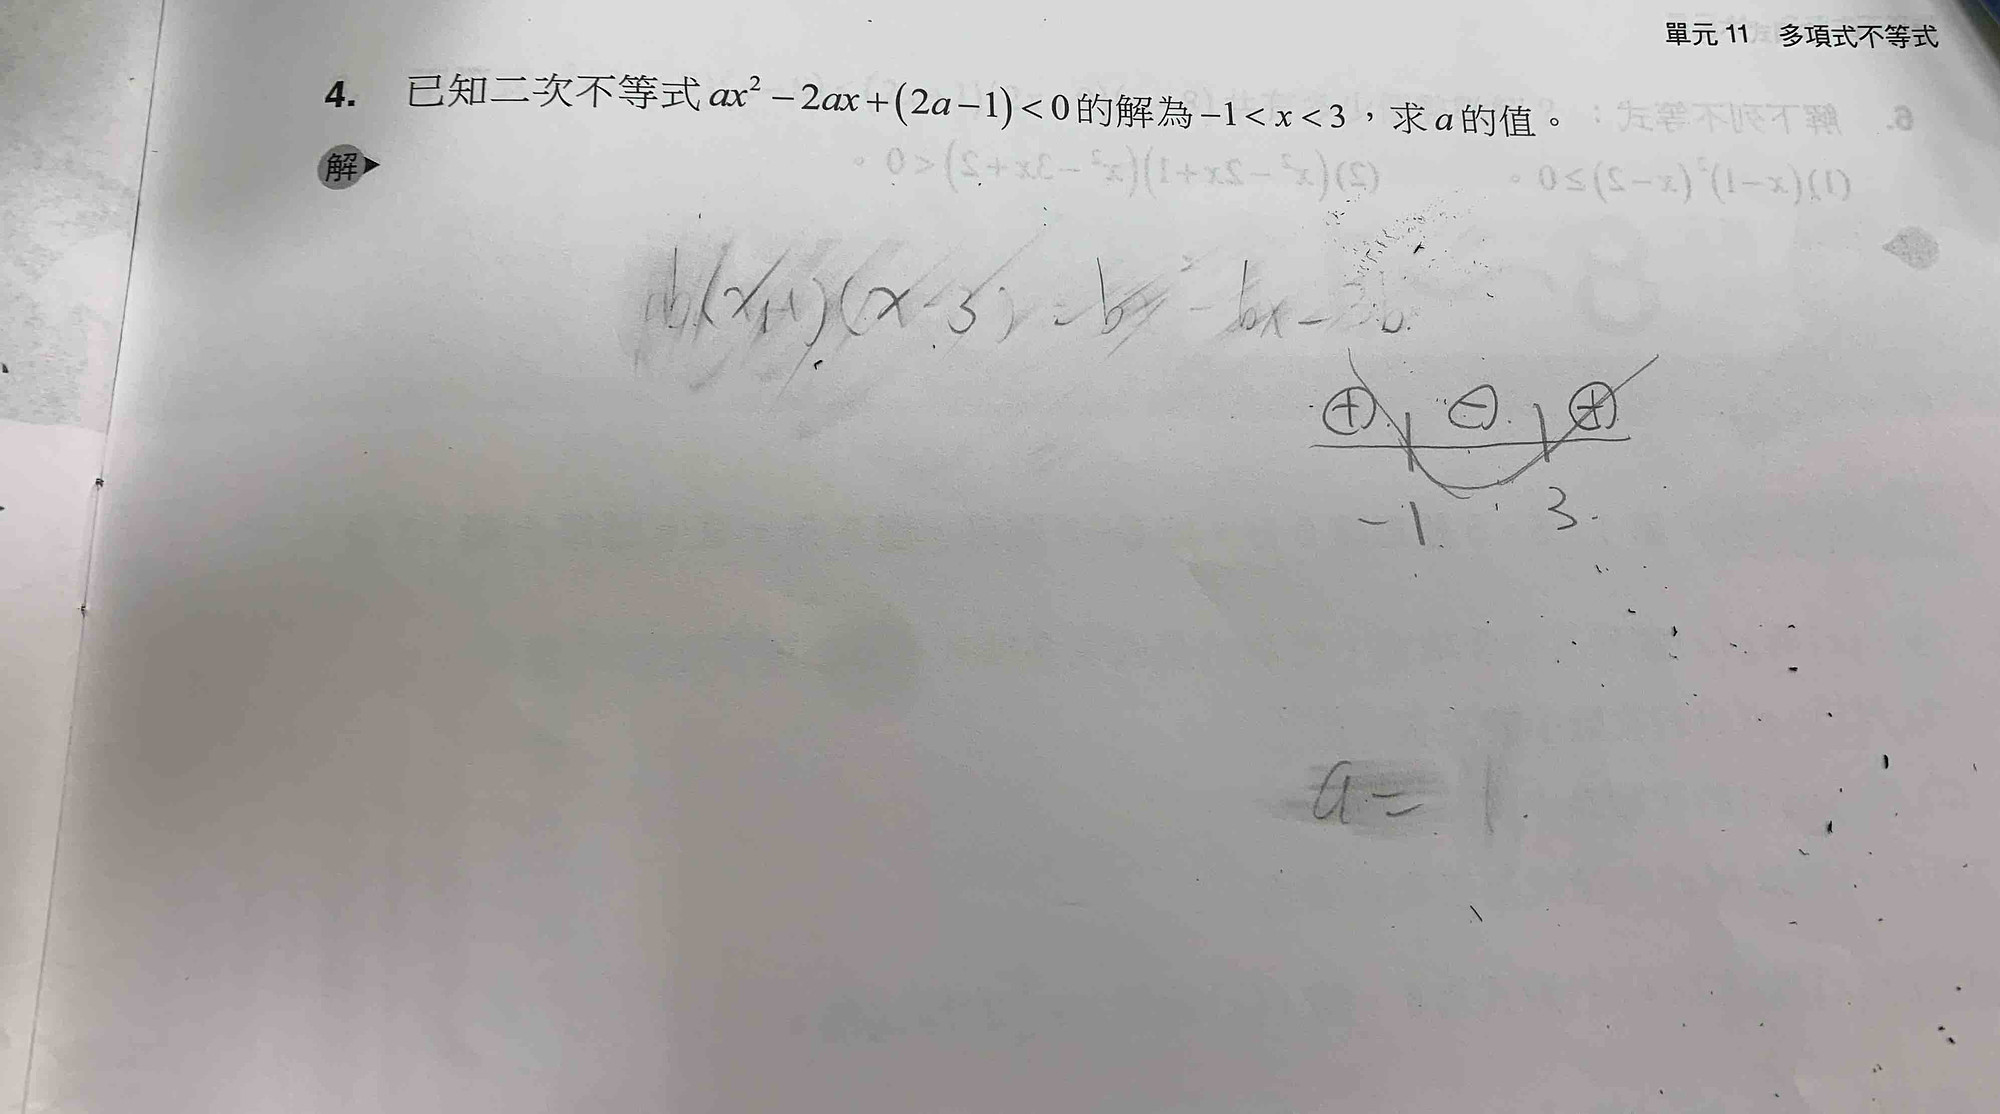 單元 11 多項式不等式
4. 已知二次不等式 ax² − 2ax + (2a − 1) < 0 的解為 −1 < x < 3，求 a 的值。
解
(x+1)(x-3) = bx² - bx - 3b
+ - +
-1 3
a = 1